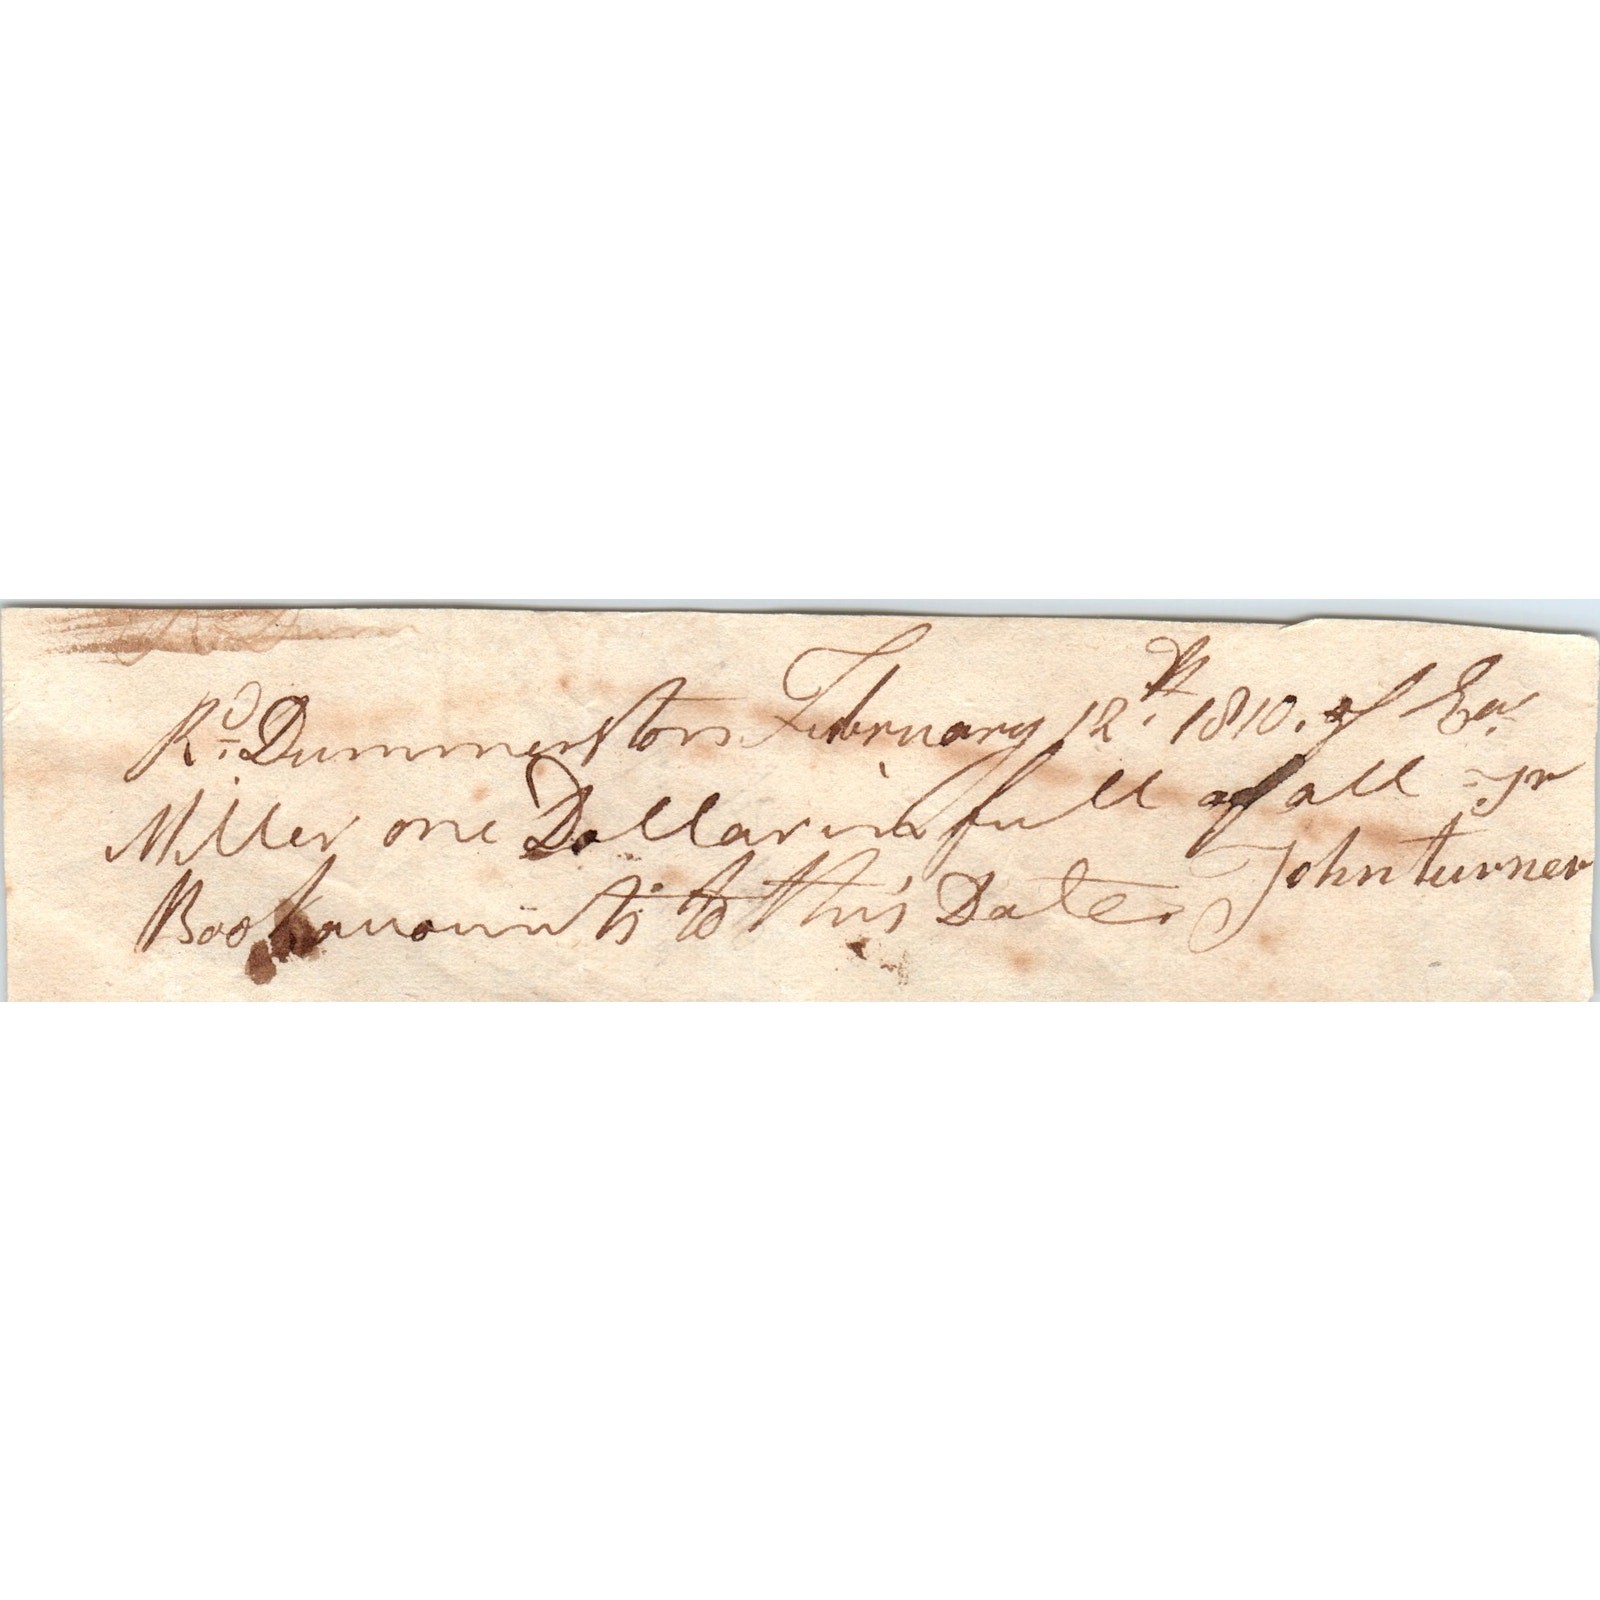 Rd. Dummerston February 12th. 1810. of Ea.
Miller one Dollar in full of all Jr
Book acounts to this Date. John turner